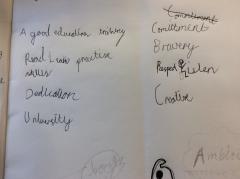 A good education
Read Lines practice
skills
Dedication
University
Commitment
Comittment
Bravery
Respect Listen
Creative